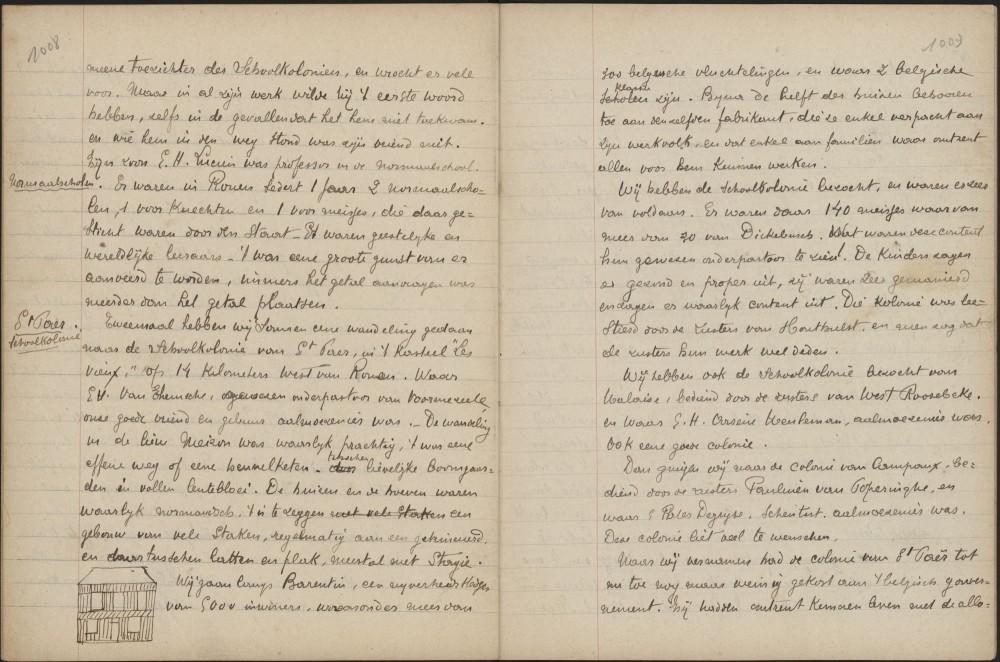 1008
meene toezichter des Schoolkoloniën, en wrocht er vele
voor. Maar in al zijn werk wilde hij 't eerste woord
hebben, zelfs in de gevallen dat het hem niet toekwam.
en wie hem in den weg stond was zijn vriend niet.
Zijn zoon E.H. Lucien was professor in de normaalschool.
Normaalscholen. Er waren in Rouen sedert 1 jaar 2 normaalscho-
len, 1 voor knechten en 1 voor meisjes, die daar ge-
sticht waren door den Staat - Er waren geestelijke en
wereldlijke leeraars - 't was eene groote gunst van er
aanveerd te worden, immers het getal aanvragen was
meerder dan het getal plaatsen.
St Paër. Schoolkolonie
Tweemaal hebben wij samen eene wandeling gedaan
naar de Schoolkolonie van St Paer, in 't kasteel "Les
vieux," op 14 kilometers west van Rouen. Waar
E.H. Van Elsische, gewezen onderpastoor van Voormezeele
onze goede vriend en gebuur aalmoezenier was. - De wandeling
in de lieve Meizon was waarlijk prachtig, 't was eene
effene weg of eene heuvelketen - door tusschen lievelijke boomgaar-
den in vollen lentebloei. De huizen en de hoeven waren
waarlijk normandisch. 't is te zeggen met vele staken een
gebouw van vele staken, regelmatig aaneen getimmerd,
en daar tusschen latten en plak, meestal met strooie.
Wij gaan langs Barentin, een nyverheids stadje
van 5000 inwoners, waaronder meer van
1009
200 belgische vluchtelingen, en waar 2 belgische
scholen klassen zijn. Byna de helft der huizen behooren
toe aan denzelfden fabrikant, die ze enkel verpacht aan
zijn werkvolk, en dat enkel aan familiën waar omtrent
allen voor hem kunnen werken.
Wij hebben de schoolkolonie bezocht, en waren er zeer
van voldaan. Er waren daar 140 meisjes waarvan
meer van 20 van Dickebusch. Wat waren deze content
hun gewezen onderpastoor te zien! De kinders zagen
er gezond en proper uit, zij waren zeer gemanierd
en zagen er waarlijk content uit. Die kolonie was be-
stierd door de zusters van Houthulst, en men zag dat
de zusters hun werk wel deden.
Wij hebben ook de schoolkolonie bezocht van
Malaise, bediend door de zusters van West Roosebeke.
en waar E.H. Arsène aalmoezenier was.
Ook eene goede colonie.
Dan gingen wij naar de colonie van Campoux, be-
diend door de zusters Paulinen van Poperinghe, en
waar E Pater Degryse, Scheutist, aalmoezenier was.
Deze colonie liet veel te wenschen.
Naar wij vernamen had de colonie van St Paër tot
nu toe nog maar weinig gekost aan 't belgisch gouver-
nement. Zij hadden omtrent kunnen leven met de allo-